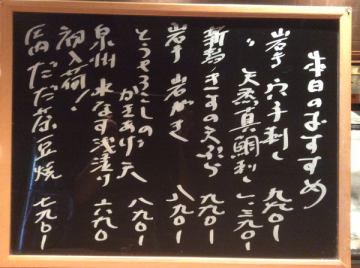 本日のおすすめ
岩手 穴子刺し 九九〇一
〃 天然真鯛刺し 一、三九〇一
新潟 きすの天ぷら 九九〇一
岩手 岩がき 八九〇一
とうもろこしのかきあげ天 八九〇一
泉州 水なす浅漬り 六九〇
初入荷!
だだ茶豆焼 七九〇一